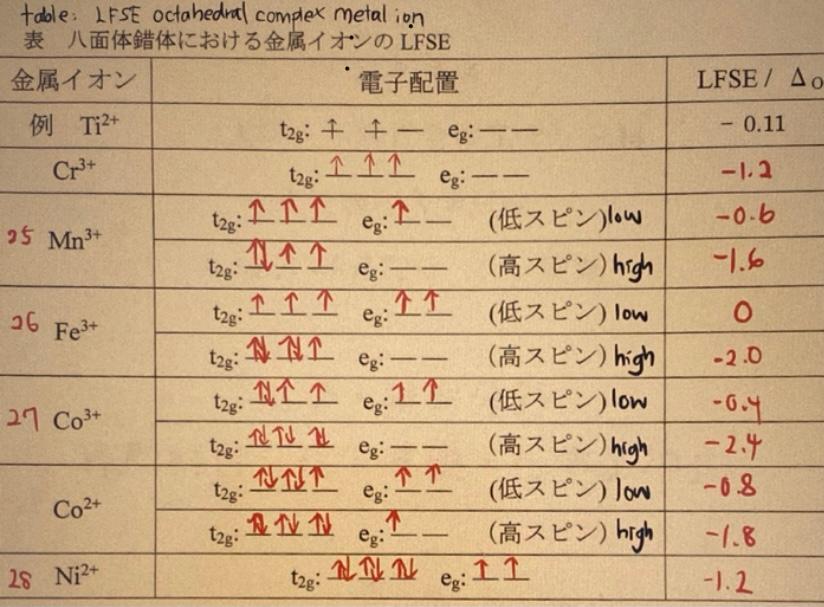 table: LFSE octahedral complex metal ion
表 八面体錯体における金属イオンの LFSE
金属イオン 電子配置 LFSE / Δo
例 Ti2+ t2g: ↑ ↑ — eg: — — - 0.11
Cr3+ t2g: ↑ ↑ ↑ eg: — — -1.2
t2g: ↑ ↑ ↑ eg: ↑ — (低スピン) low -0.6
25 Mn3+
t2g: ↑↓ ↑ ↑ eg: — — (高スピン) high -1.6
t2g: ↑ ↑ ↑ eg: ↑ ↑ (低スピン) low 0
26 Fe3+
t2g: ↑↓ ↑↓ ↑ eg: — — (高スピン) high -2.0
t2g: ↑↓ ↑ ↑ eg: ↑ ↑ (低スピン) low -0.4
27 Co3+
t2g: ↑↓ ↑↓ ↑↓ eg: — — (高スピン) high -2.4
t2g: ↑↓ ↑↓ ↑ eg: ↑ ↑ (低スピン) low -0.8
Co2+
t2g: ↑↓ ↑↓ ↑↓ eg: ↑ — (高スピン) high -1.8
28 Ni2+ t2g: ↑↓ ↑↓ ↑↓ eg: ↑ ↑ -1.2